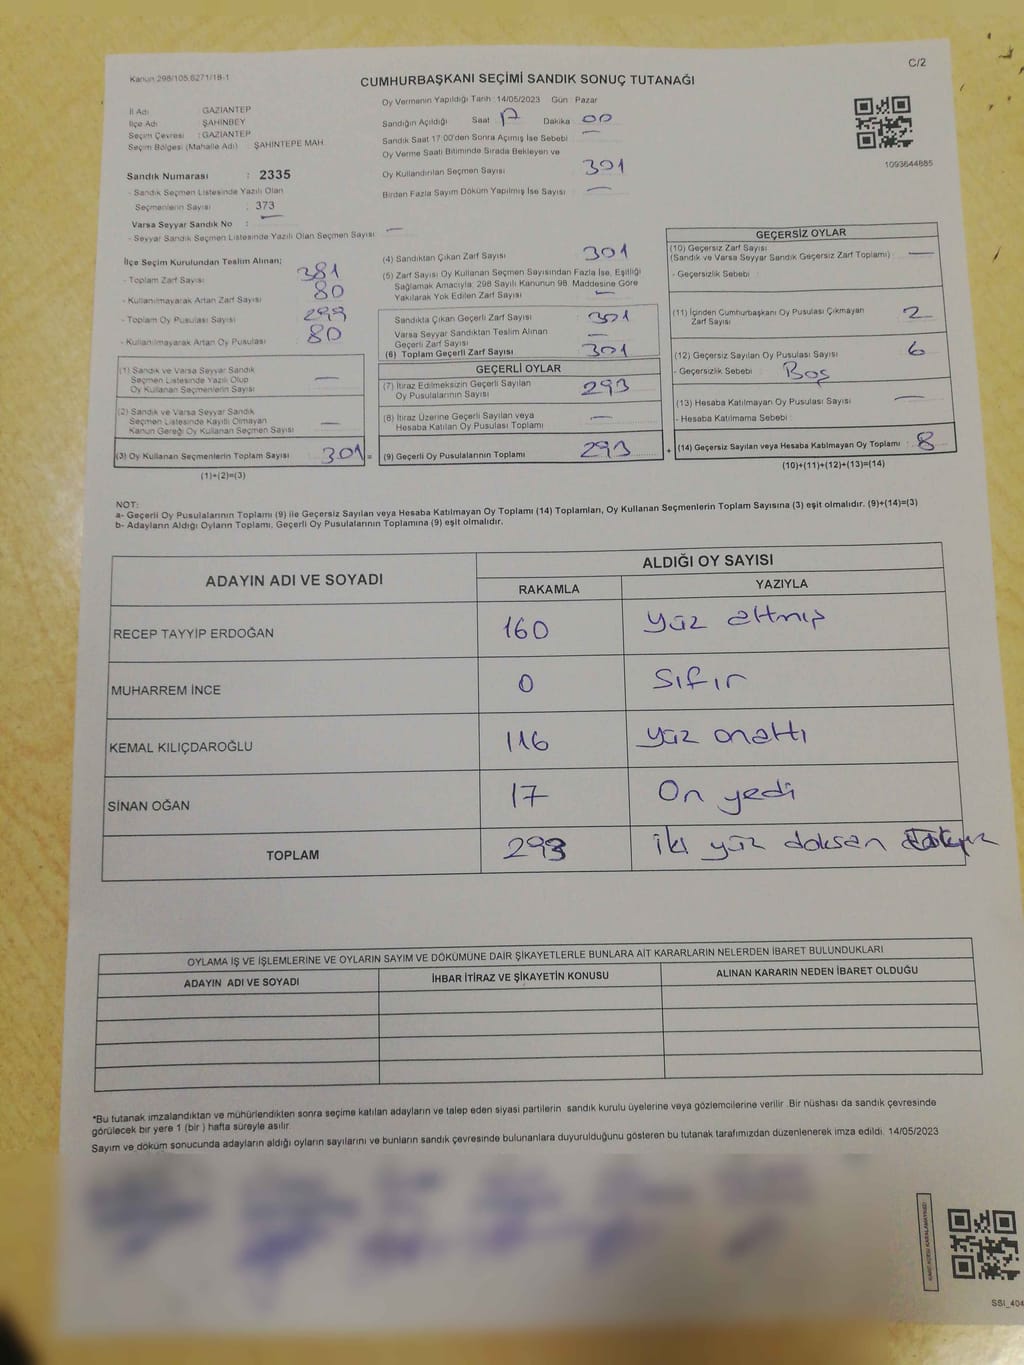 Kanun 298/105,6271/18-1
C/2
CUMHURBAŞKANI SEÇİMİ SANDIK SONUÇ TUTANAĞI
İl Adı GAZIANTEP
İlçe Adı ŞAHİNBEY
Seçim Çevresi : GAZIANTEP
Seçim Bölgesi (Mahalle Adı) : ŞAHINTEPE MAH.
Sandık Numarası : 2335
- Sandık Seçmen Listesinde Yazılı Olan
Seçmenlerin Sayısı : 373
Varsa Seyyar Sandık No : —
- Seyyar Sandık Seçmen Listesinde Yazılı Olan Seçmen Sayısı : —
Oy Vermenin Yapıldığı Tarih 14/05/2023 Gün Pazar
Sandığın Açıldığı Saat 17 Dakika 00
Sandık Saat 17:00'den Sonra Açımış İse Sebebi —
Oy Verme Saati Bitiminde Sırada Bekleyen ve
Oy Kullandırılan Seçmen Sayısı 301
Birden Fazla Sayım Döküm Yapılmış İse Sayısı —
1093644885
İlçe Seçim Kurulundan Teslim Alınan;
- Toplam Zarf Sayısı 381
- Kullanılmayarak Artan Zarf Sayısı 80
- Toplam Oy Pusulası Sayısı 299
- Kullanılmayarak Artan Oy Pusulası 80
(1) Sandık ve Varsa Seyyar Sandık
Seçmen Listesinde Yazılı Olup
Oy Kullanan Seçmenlerin Sayısı —
(2) Sandık ve Varsa Seyyar Sandık
Seçmen Listesinde Kayıtlı Olmayan
Kanun Gereği Oy Kullanan Seçmen Sayısı —
(3) Oy Kullanan Seçmenlerin Toplam Sayısı 301 =
(1)+(2)=(3)
(4) Sandıktan Çıkan Zarf Sayısı 301
(5) Zarf Sayısı Oy Kullanan Seçmen Sayısından Fazla İse, Eşitliği
Sağlamak Amacıyla; 298 Sayılı Kanunun 98. Maddesine Göre
Yakılarak Yok Edilen Zarf Sayısı —
Sandıkta Çıkan Geçerli Zarf Sayısı 301
Varsa Seyyar Sandıktan Teslim Alınan
Geçerli Zarf Sayısı —
(6) Toplam Geçerli Zarf Sayısı 301
GEÇERLİ OYLAR
(7) İtiraz Edilmeksizin Geçerli Sayılan
Oy Pusulalarının Sayısı 293
(8) İtiraz Üzerine Geçerli Sayılan veya
Hesaba Katılan Oy Pusulası Toplamı —
(9) Geçerli Oy Pusulalarının Toplamı 293 +
GEÇERSİZ OYLAR
(10) Geçersiz Zarf Sayısı
(Sandık ve Varsa Seyyar Sandık Geçersiz Zarf Toplamı) : —
- Geçersizlik Sebebi :
(11) İçinden Cumhurbaşkanı Oy Pusulası Çıkmayan
Zarf Sayısı 2
(12) Geçersiz Sayılan Oy Pusulası Sayısı 6
- Geçersizlik Sebebi : Boş
(13) Hesaba Katılmayan Oy Pusulası Sayısı —
- Hesaba Katılmama Sebebi :
(14) Geçersiz Sayılan veya Hesaba Katılmayan Oy Toplamı : 8
(10)+(11)+(12)+(13)=(14)
NOT:
a- Geçerli Oy Pusulalarının Toplamı (9) ile Geçersiz Sayılan veya Hesaba Katılmayan Oy Toplamı (14) Toplamları, Oy Kullanan Seçmenlerin Toplam Sayısına (3) eşit olmalıdır. (9)+(14)=(3)
b- Adayların Aldığı Oyların Toplamı, Geçerli Oy Pusulalarının Toplamına (9) eşit olmalıdır.
ADAYIN ADI VE SOYADI
ALDIĞI OY SAYISI
RAKAMLA YAZIYLA
RECEP TAYYİP ERDOĞAN 160 Yüz altmış
MUHARREM İNCE 0 Sıfır
KEMAL KILIÇDAROĞLU 116 yüz onaltı
SİNAN OĞAN 17 On yedi
TOPLAM 293 İki yüz doksan
OYLAMA İŞ VE İŞLEMLERİNE VE OYLARIN SAYIM VE DÖKÜMÜNE DAİR ŞİKAYETLERLE BUNLARA AİT KARARLARIN NELERDEN İBARET BULUNDUKLARI
ADAYIN ADI VE SOYADI İHBAR İTİRAZ VE ŞİKAYETİN KONUSU ALINAN KARARIN NEDEN İBARET OLDUĞU
*Bu tutanak imzalandıktan ve mühürlendikten sonra seçime katılan adayların ve talep eden siyasi partilerin sandık kurulu üyelerine veya gözlemcilerine verilir. Bir nüshası da sandık çevresinde
görülecek bir yere 1 (bir ) hafta süreyle asılır.
Sayım ve döküm sonucunda adayların aldığı oyların sayılarını ve bunların sandık çevresinde bulunanlara duyurulduğunu gösteren bu tutanak tarafımızdan düzenlenerek imza edildi. 14/05/2023
SSI_404